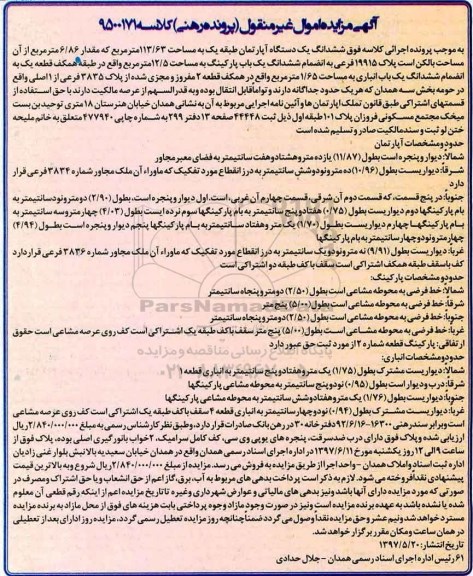 آگهی مزایده اموال غیر منقول (پرونده رهنی) کلاسه ۹۵۰۰۱۷۱
به موجب پرونده اجرائی کلاسه فوق ششدانگ یک دستگاه آپارتمان طبقه یک به مساحت ۱۱۳/۶۳ مترمربع که مقدار ۶/۸۶ مترمربع از آن
مساحت بالکن است پلاک ۱۹۹۱۵ فرعی به انضمام ششدانگ یک باب پارکینگ به مساحت ۱۲/۵ مترمربع واقع در طبقه همکف قطعه یک به
انضمام ششدانگ یک باب انباری به مساحت ۱/۶۵ مترمربع واقع در همکف قطعه ۲ مفروز و مجزی شده از پلاک ۳۸۳۵ فرعی از ۱ اصلی واقع
در حومه بخش سه همدان که هر یک حدود جداگانه دارند و تواما قابل انتقال بوده و به قدرالسهم از عرصه مالکیت دارند با حق استفاده از
قسمتهای اشتراکی طبق قانون تملک آپارتمان ها و آئین نامه اجرایی مربوط به آن به نشانی همدان خیابان هنرستان ۱۸ متری توحید بن بست
میخک مجتمع مسکونی فروزان پلاک ۱۰۱ طبقه اول ذیل ثبت ۴۴۴۴۸ صفحه ۱۳ دفتر ۲۹۹ به شماره چاپی ۴۷۷۹۴۰ متعلق به خانم ملیحه
ختن لو ثبت و سند مالکیت صادر و تسلیم شده است
حدود و مشخصات آپارتمان
شمالا: دیوار و پنجره است بطول (۱۱/۸۷) یازده متر و هشتاد و هفت سانتیمتر به فضای معبر مجاور
شرقا: دیواریست بطول (۱۰/۹۶) ده متر و نود و شش سانتیمتر به درز انقطاع مورد تفکیک که ماوراء آن ملک مجاور شماره ۳۸۳۴ فرعی قرار
دارد
جنوبا: در پنج قسمت، که قسمت دوم آن شرقی قسمت چهارم آن غربی است، اول دیوار و پنجره است، بطول (۲/۹۰) دو متر و نود سانتیمتر به
بام پارکینگها دوم دیواریست بطول (۷۵/) هفتاد و پنج سانتیمتر به بام پارکینگها سوم نرده ایست بطول (۴/۰۳) چهار متر و سه سانتیمتر به
بام پارکینگها چهارم دیواریست بطول (۱/۷۰) یک متر و هفتاد سانتیمتر به بام پارکینگها پنجم دیوار و پنجره است بطول (۴/۹۴)
چهار متر و نود و چهار سانتیمتر به بام پارکینگها
غربا: دیواریست بطول (۹/۹۱) نه متر و نود و یک سانتیمتر به درز انقطاع مورد تفکیک که ماوراء آن ملک مجاور شماره ۳۸۳۶ فرعی قرار دارد
کف با سقف طبقه همکف اشتراکی است سقف با کف طبقه دو اشتراکی است
حدود و مشخصات پارکینگ:
شمالا: خط فرضی به محوطه مشاعی است بطول (۲/۵۰) دو متر و پنجاه سانتیمتر
شرقا: خط فرضی به محوطه مشاعی است بطول (۵/۰۰) پنج متر
جنوبا: خط فرضی به محوطه مشاعی است بطول (۲/۵۰) دو متر و پنجاه سانتیمتر
غربا: خط فرضی به محوطه مشاعی است بطول (۵/۰۰) پنج متر سقف با کف طبقه یک اشتراکی است کف روی عرصه مشاعی است حقوق
ارتفاقی: پارکینگ قطعه شماره ۲ از مورد ثبت حق عبور دارد
حدود و مشخصات انباری:
شمالا: دیواریست مشترک بطول (۱/۷۵) یک متر و هفتاد و پنج سانتیمتر به انباری قطعه ۱
شرقا: درب و دیوار است بطول (۰/۹۵) نود و پنج سانتیمتر به محوطه مشاعی پارکینگها
جنوبا: دیواریست بطول (۱/۷۶) یک متر و هفتاد و شش سانتیمتر به محوطه مشاعی پارکینگها
غربا: دیواریست مشترک بطول (۰/۹۴) نود و چهار سانتیمتر به انباری قطعه ۴ سقف با کف طبقه یک اشتراکی است کف روی عرصه مشاعی
است و برابر سند رهنی ۱۶۳۰۰-۹۲/۶/۱۶ دفترخانه ۳۰ در رهن بانک صادرات قرار دارد، وطبق نظر کارشناس رسمی به مبلغ ۲/۸۴۰/۰۰۰/۰۰۰ ریال
ارزیابی شده و پلاک فوق دارای درب ضدسرقت، پنجره های یو پی وی سی، کف کامل سرامیک، ۲خواب با نورگیری اصلی بوده، پلاک فوق از
ساعت ۹ الی ۱۲ روز یکشنبه مورخ ۱۳۹۷/۶/۱۱ در اداره اجرای اسناد رسمی همدان واقع در همدان خیابان سعیدیه بالا نبش بلوار غنی زادیان
اداره ثبت اسناد و املاک همدان - واحد اجرا از طریق مزایده به فروش می رسد. مزایده از مبلغ ۲/۸۴۰/۰۰۰/۰۰۰ ریال شروع و به بالاترین قیمت
پیشنهادی نقدا فروخته می شود. لازم به ذکر است پرداخت بدهی های مربوط به آب، برق، گاز اعم از حق انشعاب و یا حق اشتراک و مصرف در
صورتی که مورد مزایده دارای آنها باشد ونیز بدهی های مالیاتی و عوارض شهرداری و غیره تا تاریخ مزایده اعم از اینکه رقم قطعی آن معلوم
شده یا نشده باشد به عهده برنده مزایده است ونیز در صورت وجود مازاد وجوه پرداختی بابت هزینه های فوق از محل مازاد به برنده مزایده
مسترد خواهد شد و نیم عشر و حق مزایده نقدا وصول می گردد ضمناً چنانچه روز مزایده تعطیل رسمی گردد، مزایده روز اداری بعد از تعطیلی
در همان ساعت و مکان مقرر برگزار خواهد شد.
تاریخ انتشار: ۱۳۹۷/۵/۲۰
۶۱ رئیس اداره اجرای اسناد رسمی همدان - جلال حدادی